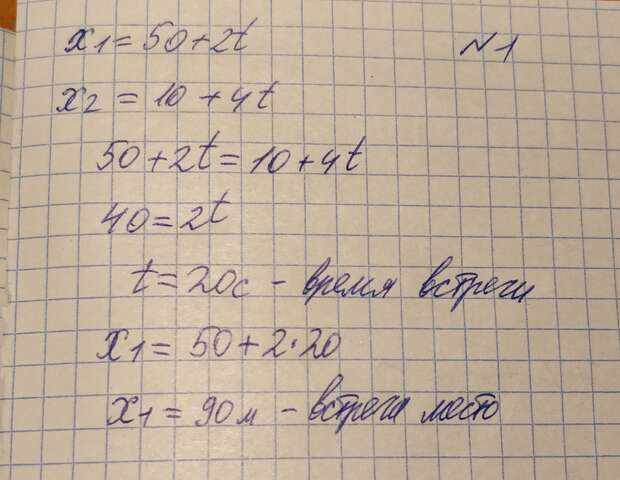 x₁ = 50 + 2t №1
x₂ = 10 + 4t
50 + 2t = 10 + 4t
40 = 2t
t = 20с - время встречи
x₁ = 50 + 2·20
x₁ = 90м - встречи место